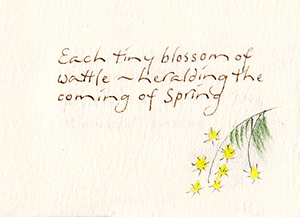 Each tiny blossom of
wattle ~ heralding the
coming of Spring